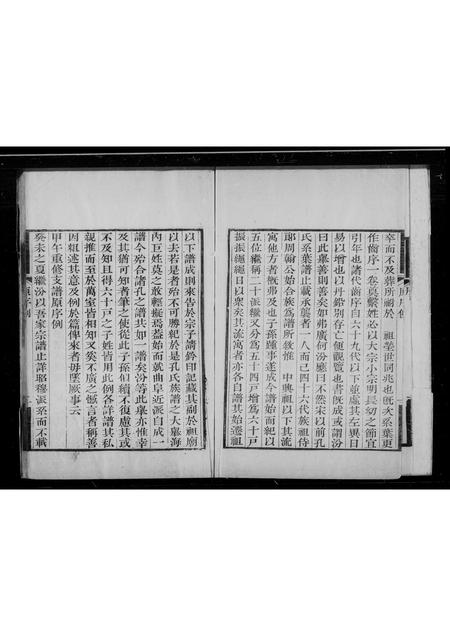 卒而不及葬所祔於　祖塋世同兆也既次系葉更
作齒序一卷奠繫姓必以大宗小宗明長幼之節宜
引年也諸代齒序自六十九代以下並處其左異日
易以增也以丹鉛別存亡便觀覽也書既成或謂汾
曰此舉善則善矣如弗廣何汾應曰不然宋以前孔
氏系葉譜止載承襲者一人而已四十六代族祖侍
郎周翰公始合族為譜所敘惟　中興祖以下其流
寓他方者概弗及也子孫踵事遂成今譜始而紀以
五位繼稱二十派繼又分為五十四戶增為六十戶
振振繩繩日以眾矣其流寓者亦各自譜其始遷祖
以下譜成則來告於宗子請鈐印記藏其副於祖廟
以去若是者殆不可勝紀於是孔氏族譜之大舉海
內巨姓莫之敢輕擬焉蓋始而就曲阜近派自成一
譜今殆合諸孔之譜共如一譜矣汾等此舉亦惟幸
及其猶可知者筆之使從此子孫但續不復慮其或
不及知且得六十戶之子姓皆用此例各詳譜其私
親推而至於萬室皆相知又奚不廣之慽言者稱善
因粗述其意及例於篇俾來者毋墜厥事云
甲午重修支譜原序例
癸未之夏繼汾以吾家宗譜止詳昭穆派系而不載